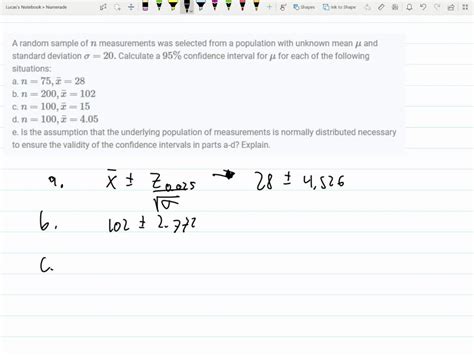 Lucas's Notebook > Numerade
Shapes
Ink to Shape
A random sample of n measurements was selected from a population with unknown mean μ and
standard deviation σ = 20. Calculate a 95% confidence interval for μ for each of the following
situations:
a. n = 75, x̄ = 28
b. n = 200, x̄ = 102
c. n = 100, x̄ = 15
d. n = 100, x̄ = 4.05
e. Is the assumption that the underlying population of measurements is normally distributed necessary
to ensure the validity of the confidence intervals in parts a-d? Explain.
a. x̄ ± Z0.025/√σ → 28 ± 4.526
b. 102 ± 2.772
c.